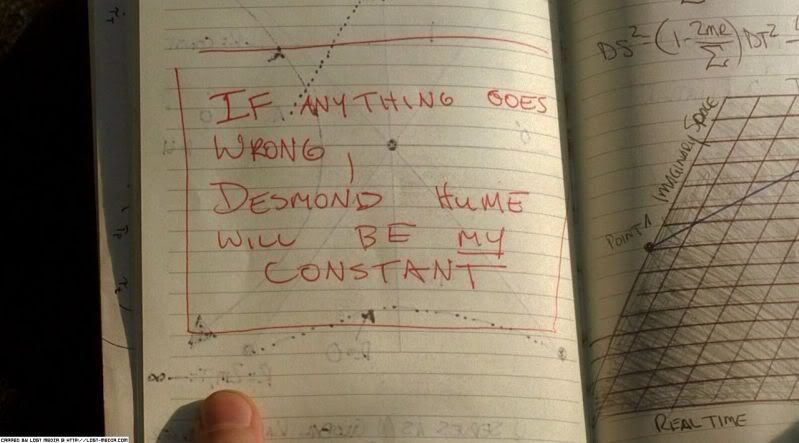 IF ANYTHING GOES
WRONG,
DESMOND HUME
WILL BE MY
CONSTANT
IMAGINARY SPACE
POINT A
REAL TIME
CAPPED BY LOST MEDIA @ HTTP://LOST-MEDIA.COM